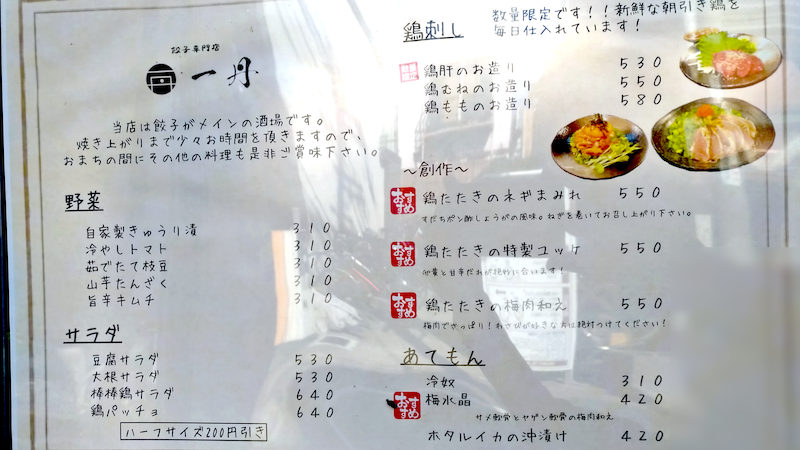 餃子専門店
一丹
当店は餃子がメインの酒場です。
焼き上がりまで少々お時間を頂きますので、
おまちの間にその他の料理も是非ご賞味下さい。
野菜
自家製きゅうり漬 310
冷やしトマト 310
茹でたて枝豆 310
山芋たんざく 310
旨辛キムチ 310
サラダ
豆腐サラダ 530
大根サラダ 530
棒棒鶏サラダ 640
鶏パッチョ 640
ハーフサイズ200円引き
鶏刺し
数量限定です!!新鮮な朝引き鶏を
毎日仕入れています!
鶏肝のお造り 530
鶏むねのお造り 550
鶏もものお造り 580
～創作～
おすすめ 鶏たたきのネギまみれ 550
すだちポン酢しょうがの風味。ねぎを巻いてお召し上がり下さい。
おすすめ 鶏たたきの特製ユッケ 550
卵黄と甘辛だれが絶妙に合います!
おすすめ 鶏たたきの梅肉和え 550
梅肉でさっぱり!わさびが好きな方は絶対つけてください!
あてもん
冷奴 310
おすすめ 梅水晶 420
サメ軟骨とヤゲン軟骨の梅肉和え
ホタルイカの沖漬け 420